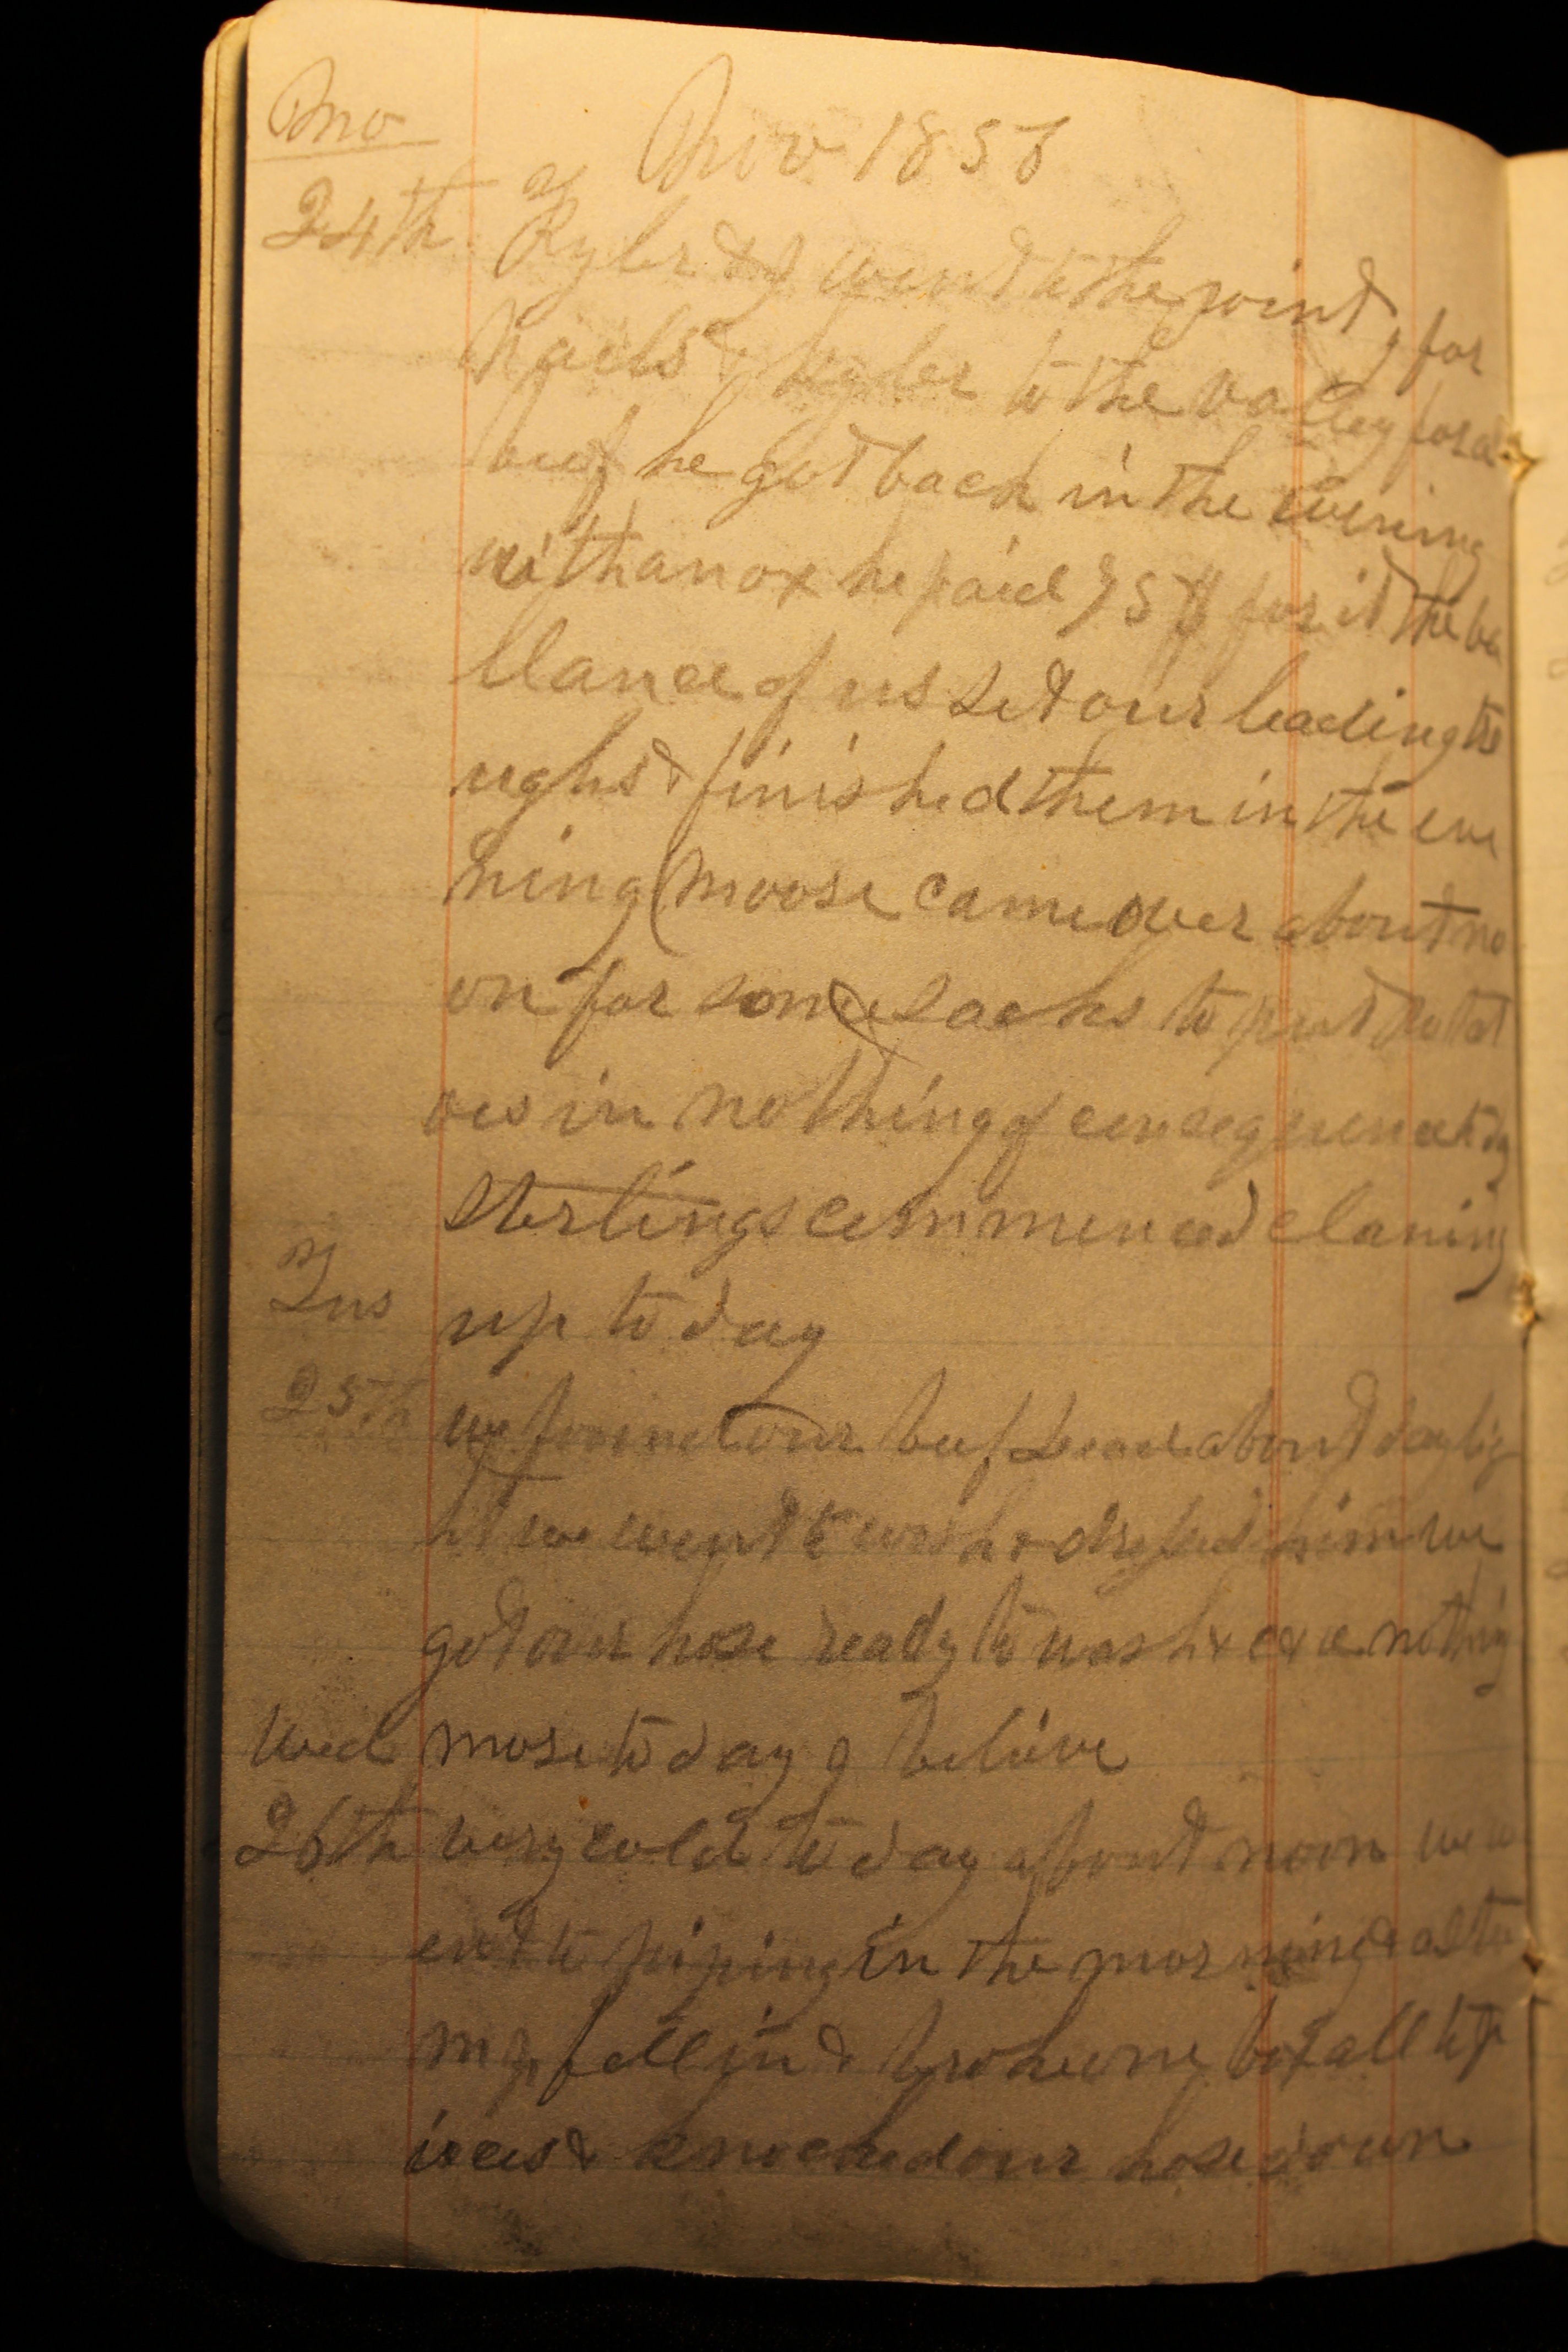 Mo
Nov 1856
24th Kyler & I went to the point I for
Nails & Kyler to the valley for a
beef he got back in the evening
with an ox he paid 75 $ for it the ba
llance of us set our leading tro
ughs & finished them in the eve
ning Moose came over about no
on for some sacks to put potat
oes in nothing of consequence to day
Sterlings commenced claning
Tus up to day
25th we found our beef about daylig
ht we went to wrsh & dressed him we
got our hose ready to wash & nothing
Wed more to day I belive
26th very cold to day about noon we w
ent to piping in the morning a
fell in & broke one box all to p
ieces & knocked our hose down